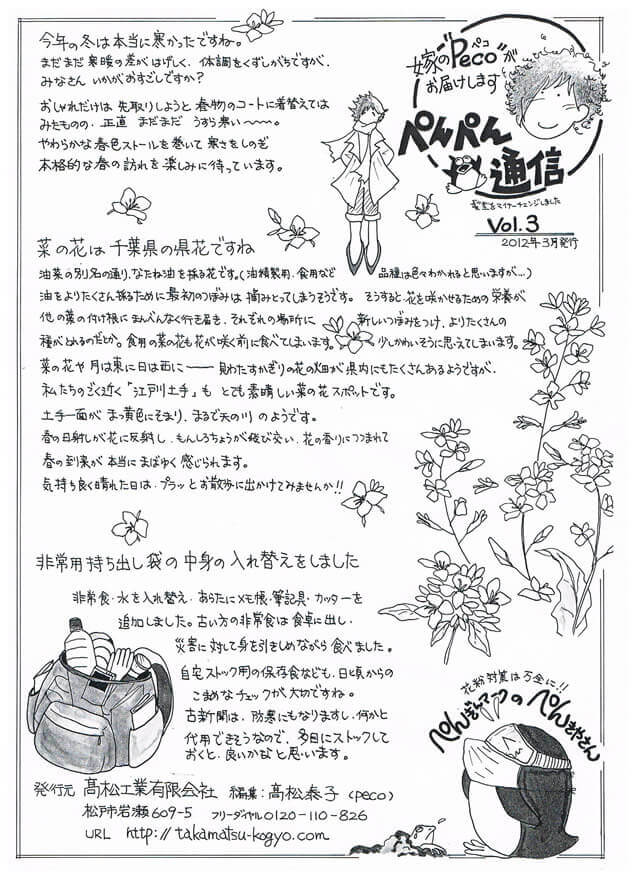 今年の冬は本当に寒かったですね。
まだまだ寒暖の差がはげしく、体調をくずしがちですが、
みなさん いかがおすごしですか？
おしゃれだけは 先取りしようと 春物のコートに着替えては
みたものの、正直 まだまだ うすら寒い〜〜。
やわらかな春色ストールを巻いて 寒さをしのぎ
本格的な春の訪れを楽しみに待っています。
嫁の"Peco"が
ペコ
お届けします
ぺんぺん
通信
髪型をマイナーチェンジしました
Vol.3
2012年3月発行
菜の花は 千葉県の県花ですね
油菜の別名の通り、なたね油を採る花です。(油精製用、食用など 品種は色々わかれると思いますが…)
油をよりたくさん採るために 最初のつぼみは 摘みとってしまうそうです。 そうすると、花を咲かせるための 栄養が
他の葉の付け根に まんべんなく行き届き、それぞれの場所に 新しいつぼみをつけ、よりたくさんの
種がとれるのだとか。食用の菜の花も 花が咲く前に食べてしまいます。 少しかわいそうに思えてしまいます。
菜の花や 月は東に 日は西に ―― 見わたすかぎりの花の畑が 県内にもたくさんあるようですが、
私たちのごく近く「江戸川土手」も とても 素晴しい菜の花スポットです。
土手一面が まっ黄色にそまり、まるで天の川 のようです。
春の日射しが 花に反射し、もんしろちょうが飛び交い、花の香りにつつまれて
春の到来が 本当にまばゆく感じられます。
気持ち良く晴れた日は、プラッとお散歩に出かけてみませんか!!
非常用持ち出し袋の中身の入れ替えをしました
非常食・水を入れ替え、あらたにメモ帳・筆記具・カッターを
追加しました。古い方の非常食は食卓に出し、
災害に対して身を引きしめながら食べました。
自宅ストック用の保存食なども、日頃からの
こまめなチェックが大切ですね。
古新聞は、防寒にもなりますし、何かと
代用できそうなので、多目にストックして
おくと、良いかなと思います。
花粉対策は万全に!!
ぺんぎんマークのぺんきやさん
発行元 髙松工業有限会社 編集：髙松泰子(peco)
松戸市岩瀬609-5 フリーダイヤル0120-110-826
URL http://takamatsu-kogyo.com